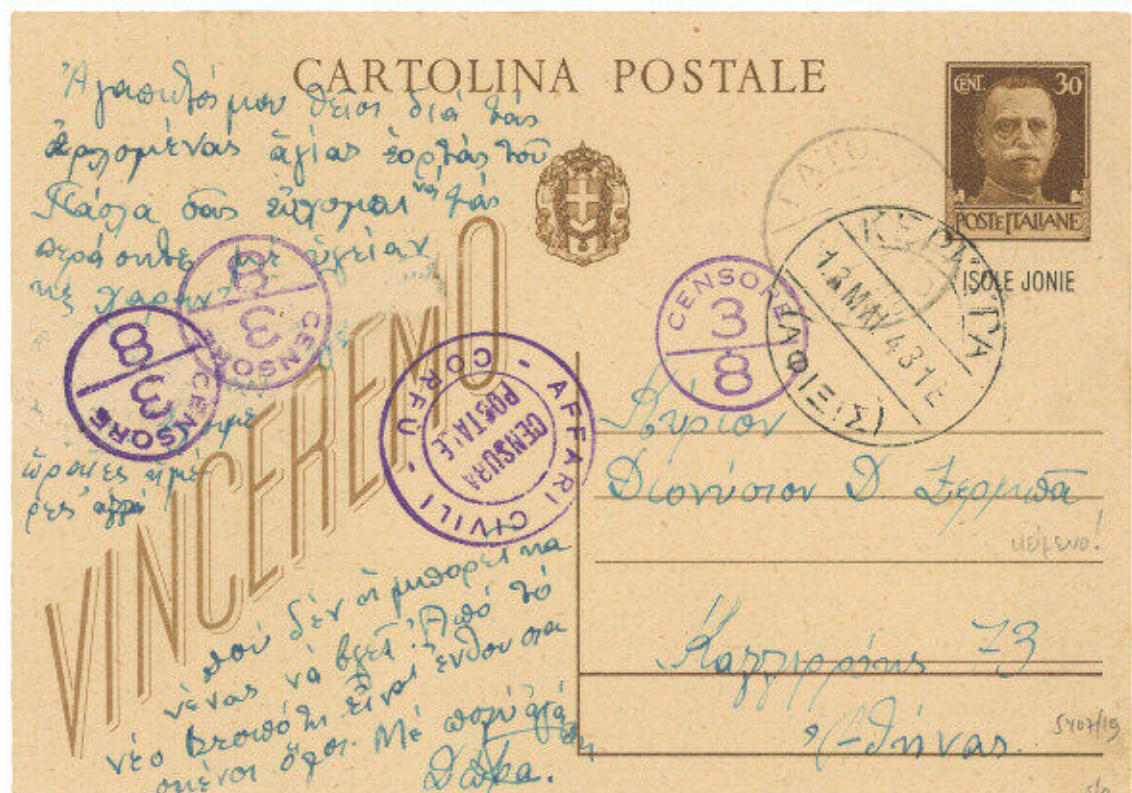 CARTOLINA POSTALE
CENT. 30
POSTE ITALIANE
ISOLE JONIE
VINCEREMO
Ἀγαπητός μου θεῖος διά τάς
ἐρχομένας ἁγίας ἑορτάς τοῦ
Πάσχα σας εὔχομαι νά τάς
περάσητε μέ ὑγείαν
χαράν
ὡραῖες ἡμέ
ρες
πού δέν μπορεῖ κα
νένας νά βγεῖ. Ἀπό τό
νέο εἶναι ἐνθουσια
σμένοι ὅλοι. Μέ πολύ ἀγά
πη
Δώρα.
CENSORE
3
8
CENSORE
3
8
CENSORE
3
8
AFFARI CIVILI
CORFÙ
CENSURA
POSTALE
ΚΕΡΚΥΡΑ
12 MAY 43 18
(ΑΦΙΞΙΣ)
Κύριον
Διονύσιον Δ.
κείμενο!
73
Ἀθήνας.
5407/19